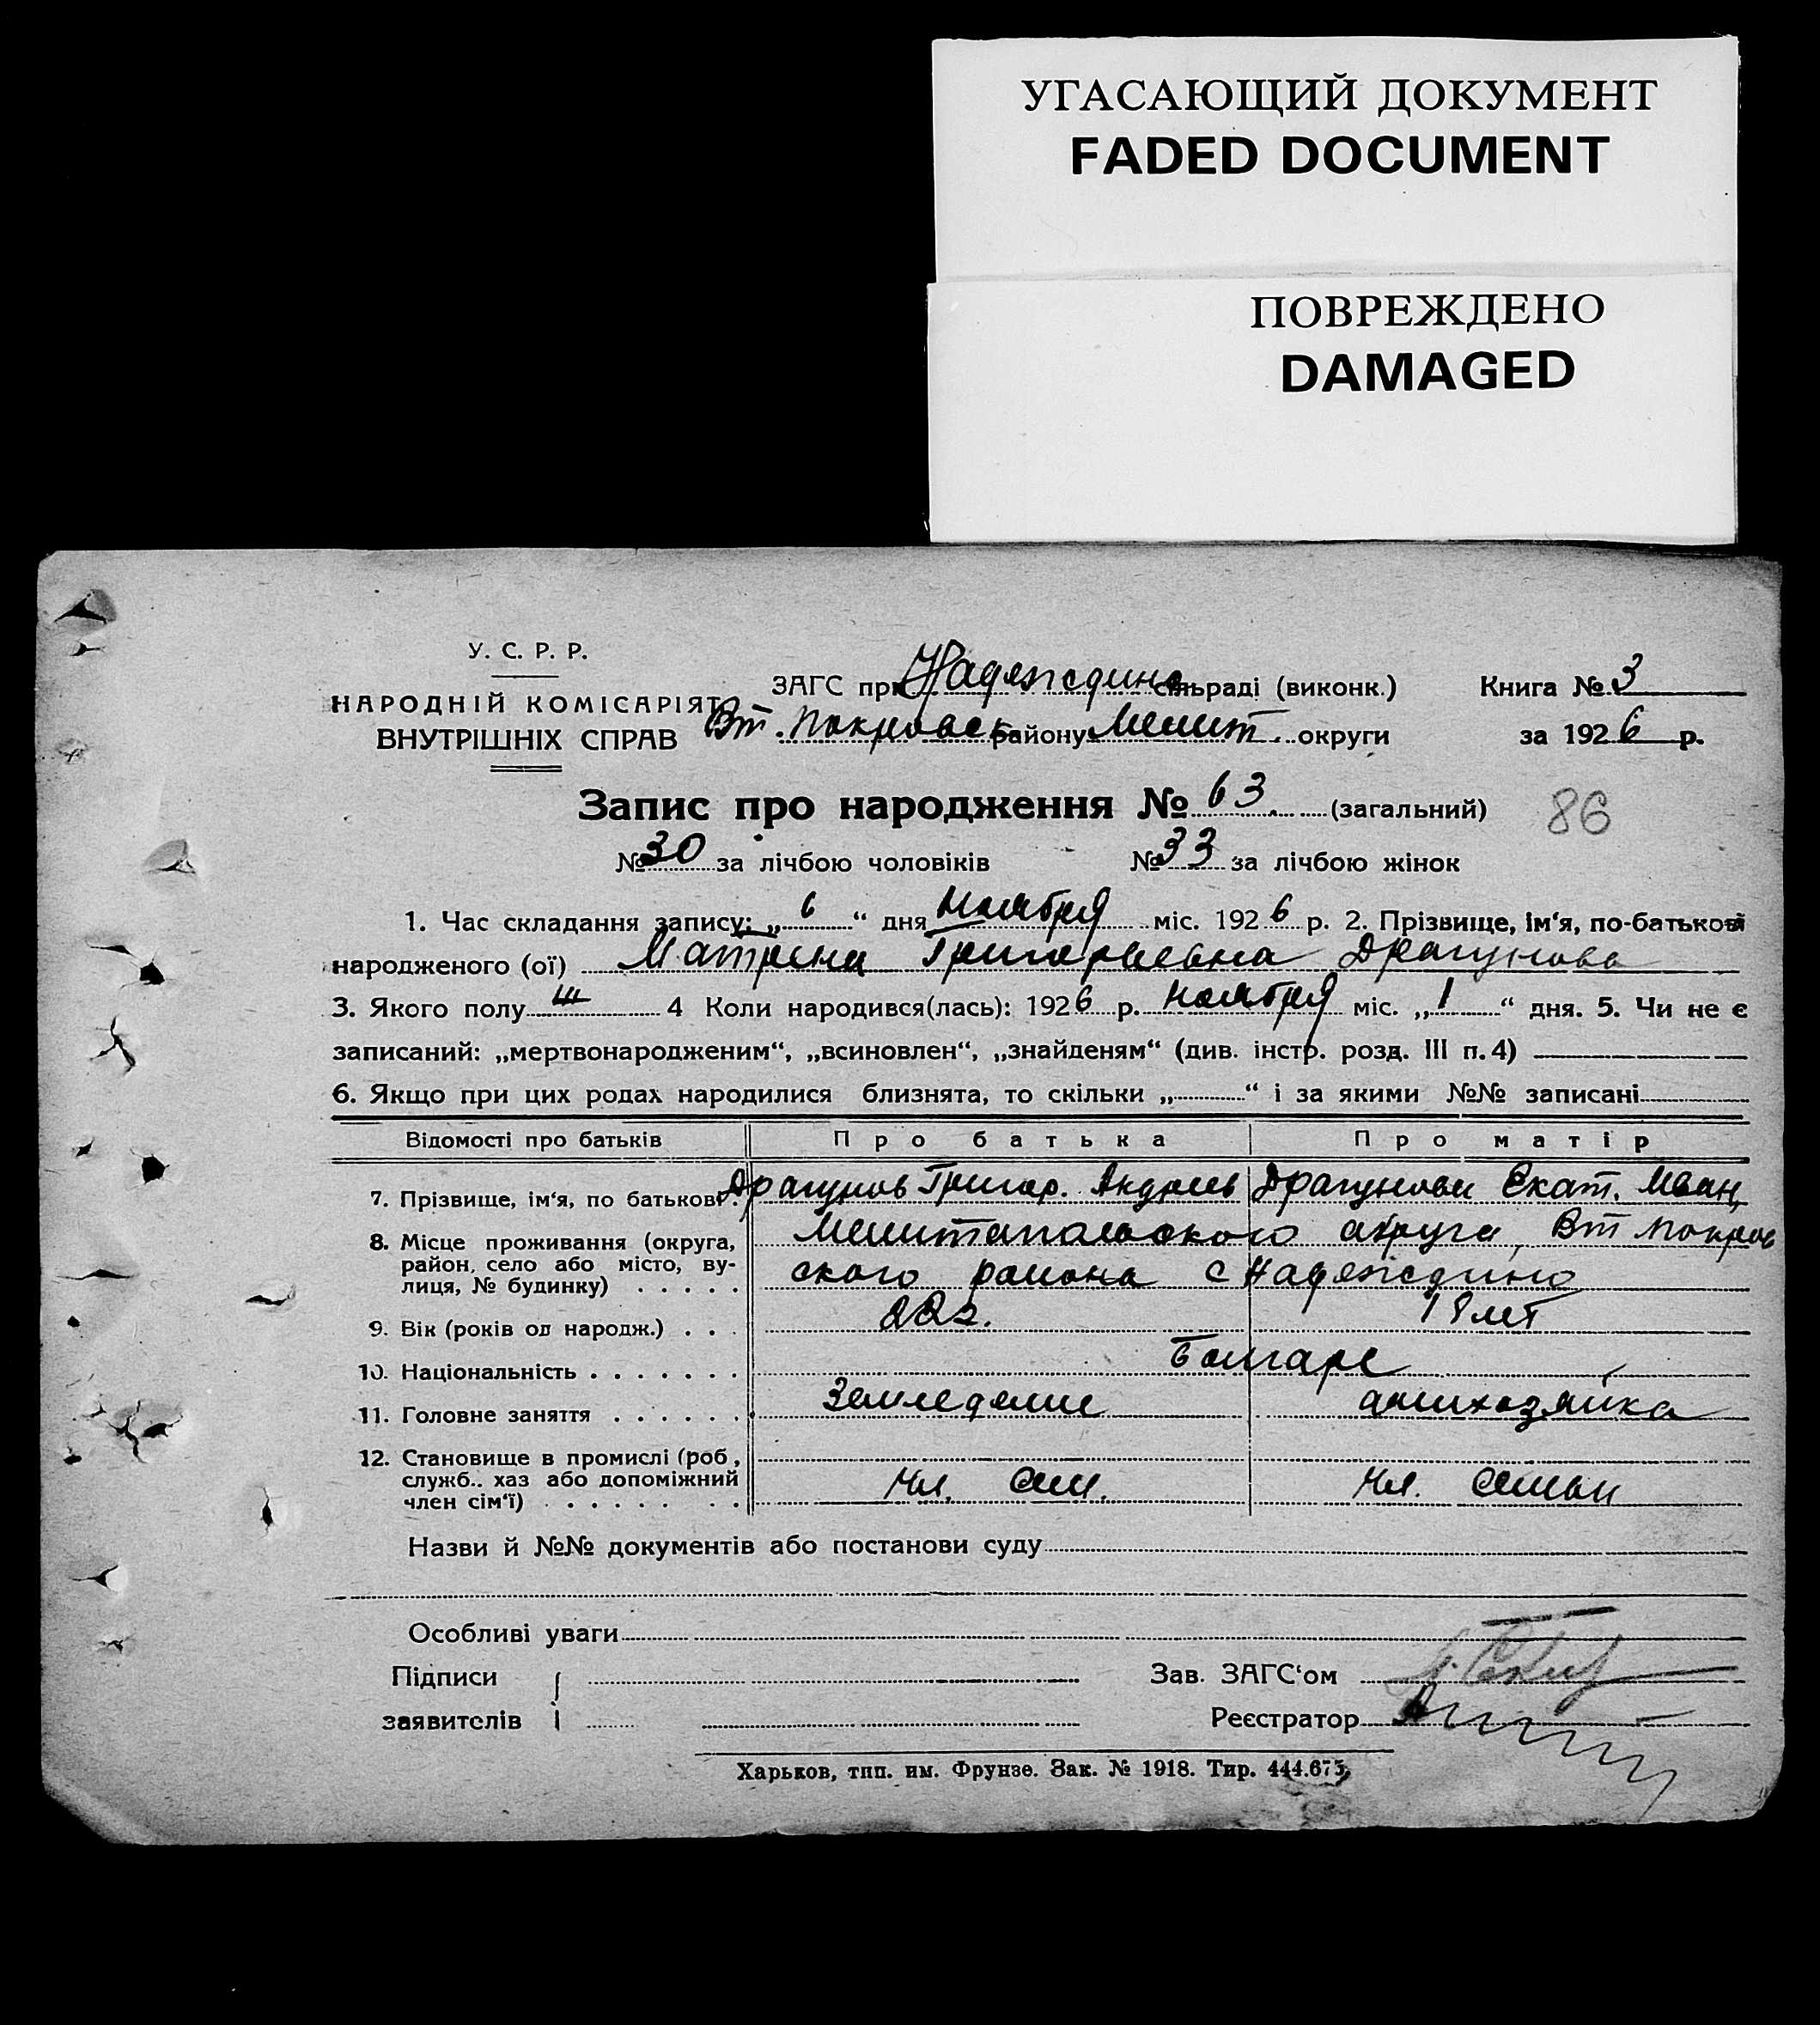 УГАСАЮЩИЙ ДОКУМЕНТ
FADED DOCUMENT
ПОВРЕЖДЕНО
DAMAGED
У. С. Р. Р.
НАРОДНІЙ КОМІСАРІЯТ
ВНУТРІШНІХ СПРАВ
ЗАГС при Надеждино сільраді (виконк.) Книга № 3
Вт. Покровск району Мелит. округи за 1926 р.
Запис про народження № 63. (загальний) 86
№ 30 за лічбою чоловіків № 33 за лічбою жінок
1. Час складання запису: „ 6 “ дня ноября міс. 1926 р. 2. Прізвище, ім‘я, по-батькові
народженого (ої) Матрена Григорьевна Драгунова
3. Якого полу ж 4 Коли народився(лась): 1926 р. ноября міс. „ 1 “ дня. 5. Чи не є
записаний: „мертвонародженим“, „всиновлен“, „знайденям“ (див. інстр. розд. III п. 4)
6. Якщо при цих родах народилися близнята, то скільки „ “ і за якими №№ записані
Відомості про батьків Про батька Про матір
7. Прізвище, ім‘я, по батькові. Драгунов Григор. Андреев Драгунова Екат. Иван,
8. Місце проживання (округа, Мелитопольского округа, Вт Покров
район, село або місто, ву- ского района с Надеждино
лиця, № будинку) . . . . .
9. Вік (років од народж.) . . . 22г. 18 лет
10. Національність . . . . . . . Болгаре
11. Головне заняття . . . . . . Земледелие домхозяйка
12. Становище в промислі (роб,
служб.. хаз або допоміжний Чл. сем. Чл. семьи
член сім‘ї) . . . . . . . .
Назви й №№ документів або постанови суду
Особливі уваги
Підписи Зав. ЗАГС‘ом
заявителів Реєстратор
Харьков, тип. им. Фрунзе. Зак. № 1918. Тир. 444.675,